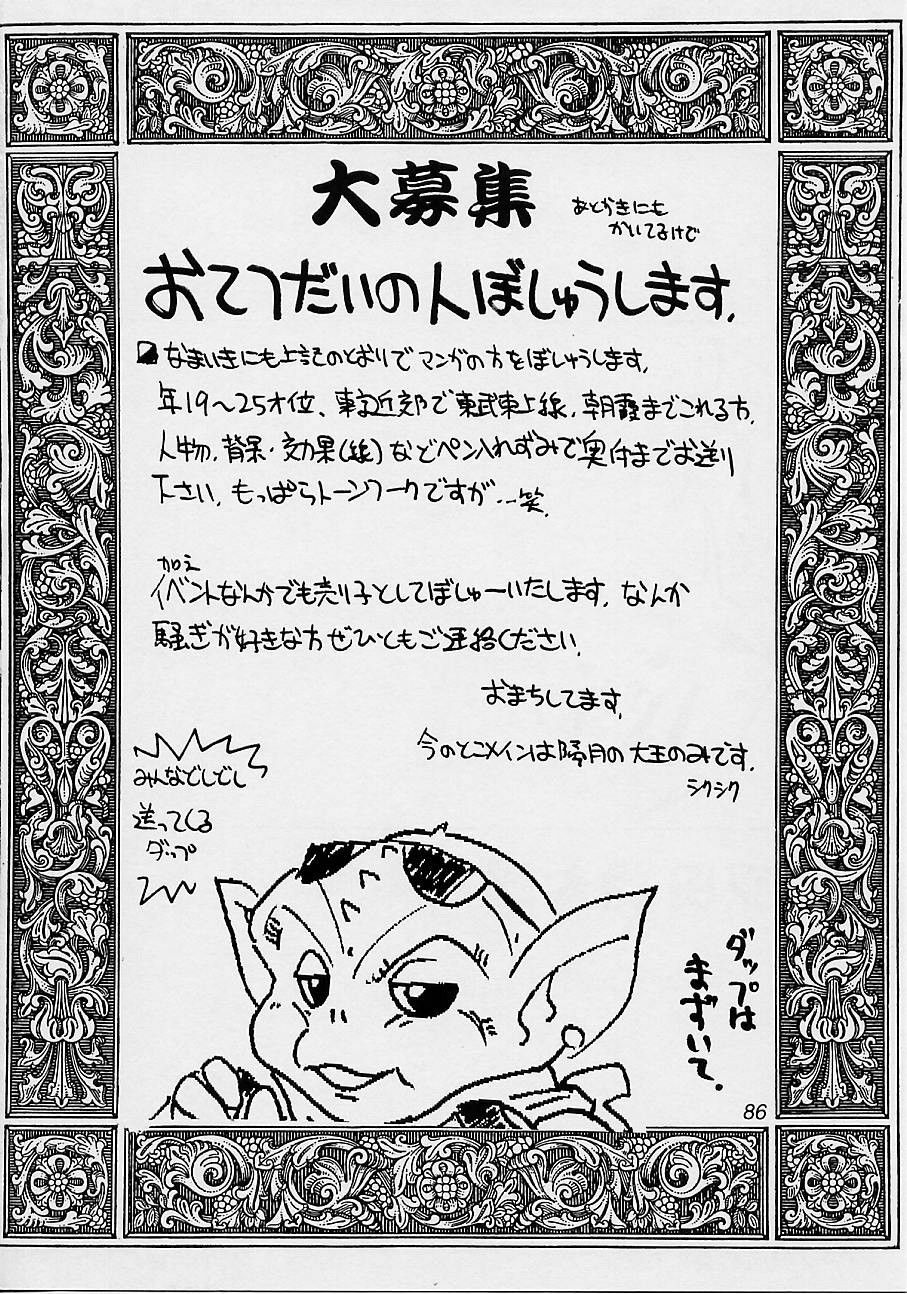 大募集
あとがきにも
かいてるけど
おてつだいの人ぼしゅうします.
なまいきにも上記のとおりで マンガの方をぼしゅうします.
年19〜25才位、東京近郊で東武東上線.朝霞までこれる方.
人物.背景・効果(線)などペン入れずみで奥付までお送り
下さい.もっぱらトーンワークですが...笑.
イベントなんかでも売り子としてぼしゅーいたします.なんか
騒ぎが好きな方ぜひともご連絡ください.
おまちしてます.
今のとこメインは隔月の大王のみです.
シクシク
みんなどしどし
送ってくる
ダップ
ダップは
まずいて.
86